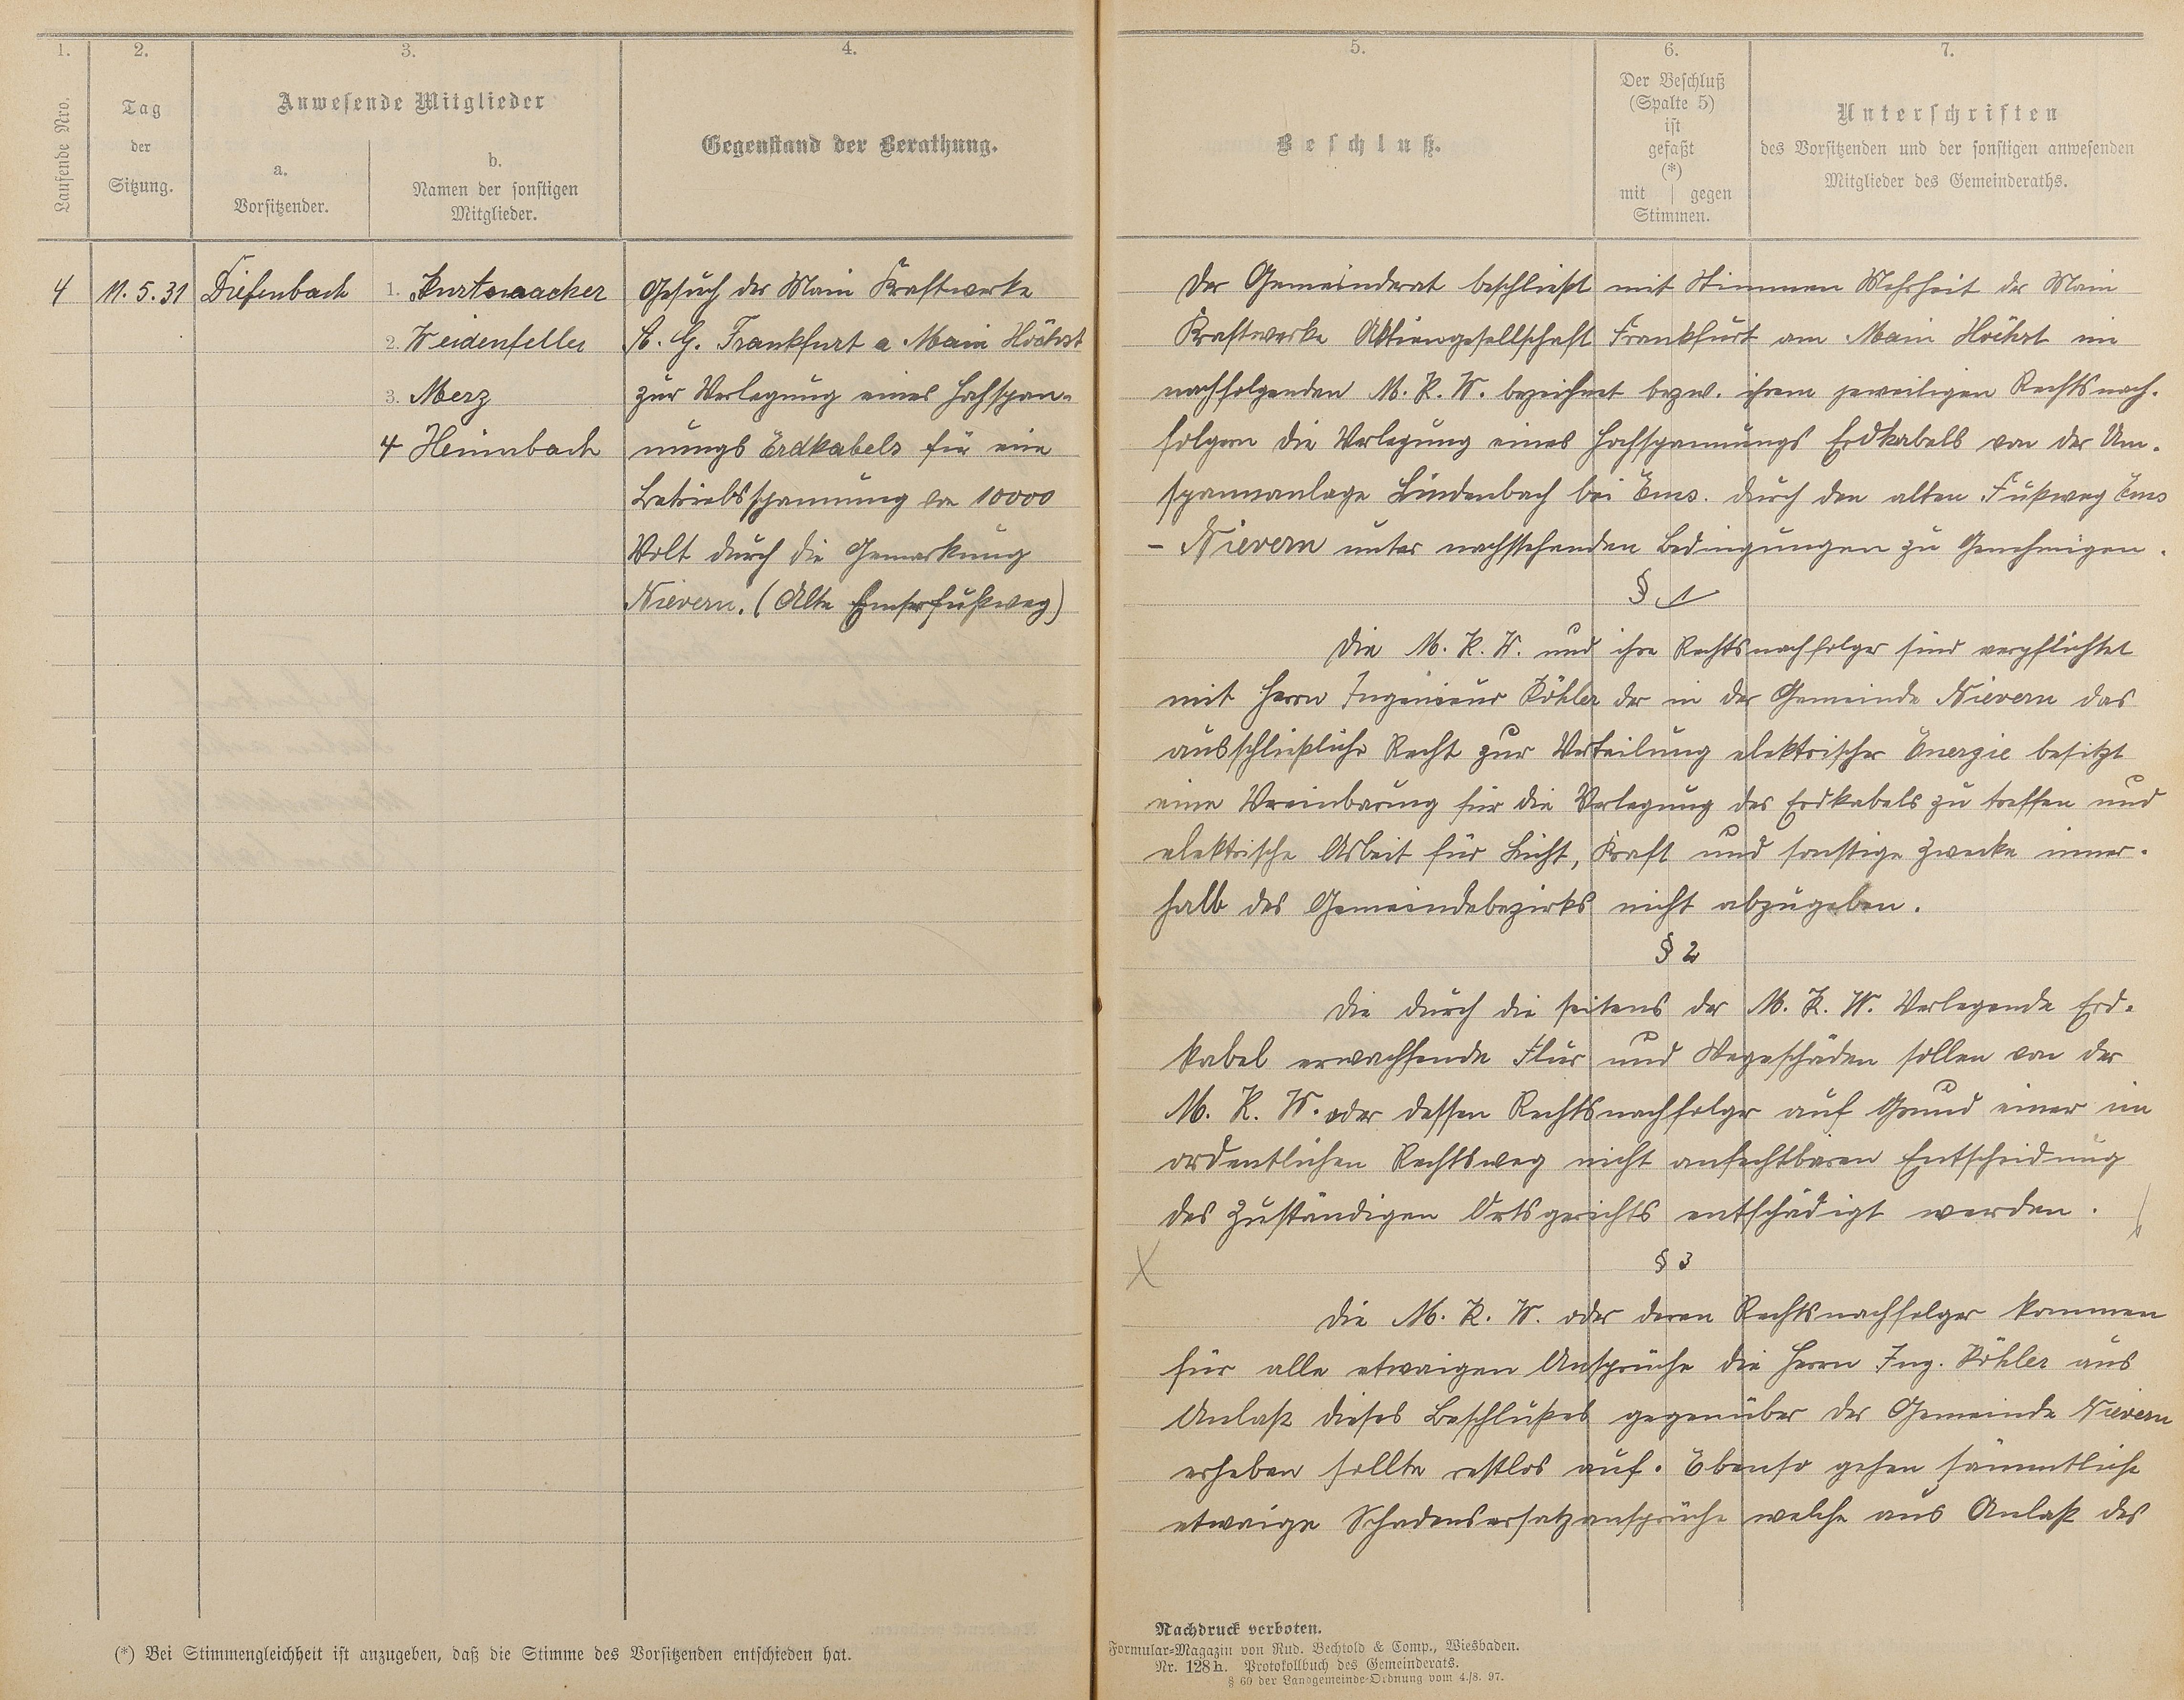 1.
2.
3.
4.
Laufende Nro.
Tag
der
Sitzung.
Anwesende Mitglieder
a.
Vorsitzender.
b.
Namen der sonstigen
Mitglieder.
Gegenstand der Berathung.
4
11. 5. 31
Diefenbach
1.
2. Weidenfeller
3. Merz
4 Heimbach
Gesuch der Main Kraftwerke
A. G. Frankfurt a Main Höchst
zur Verlegung eines Hochspan-
nungs Erdkabels für eine
Betriebsspannung von 10000
Volt durch die Gemarkung
Nievern. (Alte Emserfußweg)
(*) Bei Stimmengleichheit ist anzugeben, daß die Stimme des Vorsitzenden entschieden hat.
5.
6.
7.
Beschluß.
Der Beschluß
(Spalte 5)
ist
gefaßt
(*)
mit | gegen
Stimmen.
Unterschriften
des Vorsitzenden und der sonstigen anwesenden
Mitglieder des Gemeinderaths.
Der Gemeinderat beschließt mit Stimmen Mehrheit der Main
Kraftwerke Aktiengesellschaft Frankfurt am Main Höchst im
nachfolgenden M. K. W. bezeichnet bezw. ihrem jeweiligen Rechtsnach-
folgern die Verlegung eines Hochspannungs Erdkabels von der Um-
spannanlage Lindenbach bei Ems. durch den alten Fußweg Ems
- Nievern unter nachstehenden Bedingungen zu Genehmigen.
§ 1
Die M. K. W. und ihre Rechtsnachfolger sind verpflichtet
mit Herrn Ingenieur Köhler der in der Gemeinde Nievern das
ausschließliche Recht zur Verteilung elektrischer Energie besitzt
eine Vereinbarung für die Verlegung des Erdkabels zu treffen und
elektrische Arbeit für Licht, Kraft und sonstige Zwecke inner-
halb des Gemeindebezirks nicht abzugeben.
§ 2
Die durch die seitens der M. K. W. Verlegende Erd-
kabel erwachsende Flur und Wegeschäden sollen von der
M. K. W. oder dessen Rechtsnachfolger auf Grund einer im
ordentlichen Rechtsweg nicht anfechtbaren Entscheidung
des Zuständigen Ortsgerichts entschädigt werden.
§ 3
Die M. K. W. oder deren Rechtsnachfolger kommen
für alle etwaigen Ansprüche die Herrn Ing. Köhler aus
Anlaß dieses Beschlußes gegenüber der Gemeinde Nievern
erheben sollte restlos auf. Ebenso gehen sämmtliche
etwaige Schadensersatzansprüche welche aus Anlaß des
Nachdruck verboten.
Formular-Magazin von Rud. Bechtold & Comp., Wiesbaden.
Nr. 128h. Protokollbuch des Gemeinderats.
§ 60 der Landgemeinde-Ordnung vom 4./8. 97.